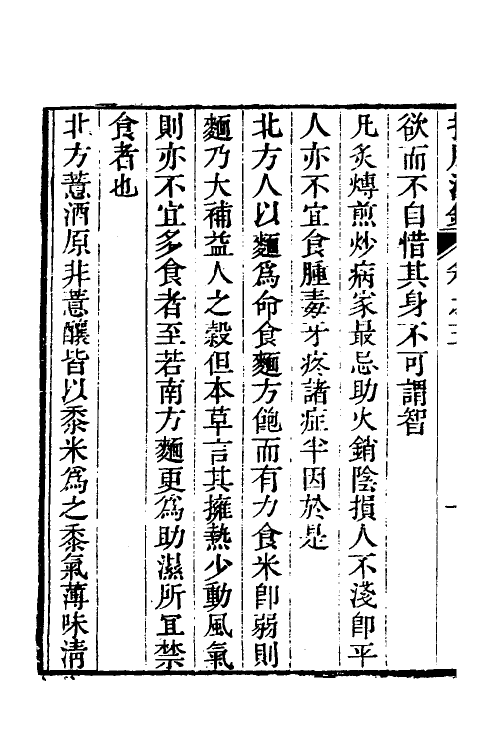 欲而不自惜其身不可謂智
凡炙煿煎炒病家最忌助火銷陰損人不淺卽平
人亦不宜食腫毒牙疼諸症半因於是
北方人以麵爲命食麵方飽而有力食米卽弱則
麵乃大補益人之穀但本草言其擁熱少動風氣
則亦不宜多食者至若南方麵更爲助濕所宜禁
食者也
北方薏酒原非薏釀皆以黍米爲之黍氣薄味淸